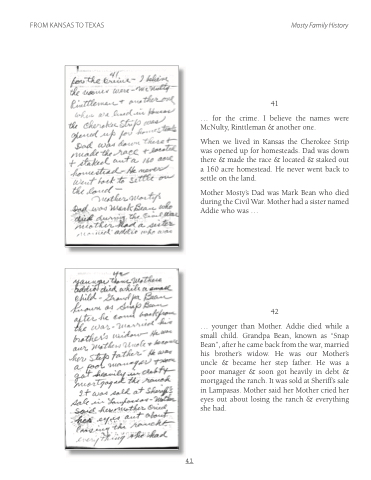 FROM KANSAS TO TEXAS
Mosty Family History
41
for the crime - I believe
the names were - McNulty
Rinttleman & another one
When we lived in Kansas
the Cherokee Strip was
opened up for homesteads
Dad was down there &
made the race & located
& staked out a 160 acre
homestead - He never
went back to settle on
the land -
Mother Mosty's
Dad was Mark Bean who
died during the Civil War
Mother had a sister
named Addie who was
41
… for the crime. I believe the names were
McNulty, Rinttleman & another one.
When we lived in Kansas the Cherokee Strip
was opened up for homesteads. Dad was down
there & made the race & located & staked out
a 160 acre homestead. He never went back to
settle on the land.
Mother Mosty's Dad was Mark Bean who died
during the Civil War. Mother had a sister named
Addie who was …
42
younger than Mother
Addie died while a small
child - Grandpa Bean
known as Snap Bean
after he came back from
the war - married his
brother's widow - He was
our Mother's Uncle & became
her Step Father - he was
a poor manager & soon
got heavily in debt &
mortgaged the ranch
It was sold at Sheriff's
sale in Lampasas - Mother
said her mother cried
her eyes out about
losing the ranch &
everything she had
42
… younger than Mother. Addie died while a
small child. Grandpa Bean, known as “Snap
Bean”, after he came back from the war, married
his brother's widow. He was our Mother's
uncle & became her step father. He was a
poor manager & soon got heavily in debt &
mortgaged the ranch. It was sold at Sheriff's sale
in Lampasas. Mother said her Mother cried her
eyes out about losing the ranch & everything
she had.
41